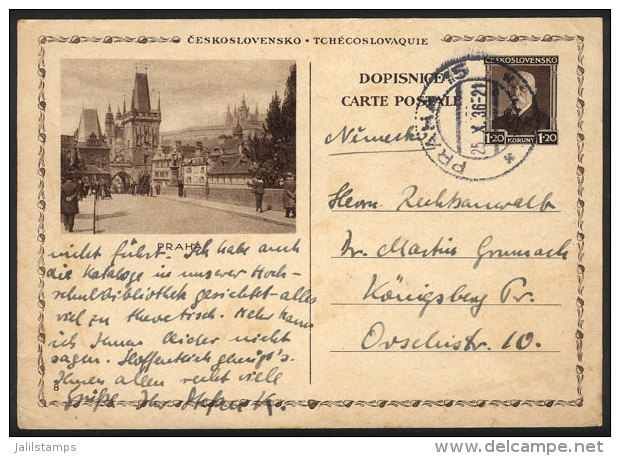 ČESKOSLOVENSKO • TCHÉCOSLOVAQUIE
DOPISNICE
CARTE POSTALE
ČESKOSLOVENSKO
1·20 KORUNY 1·20
PRAHA 15
25.X.36-21
Německo
Herrn Rechtsanwalt
Dr. Martin Grumach
Königsberg Pr.
Orselnstr. 10.
PRAHA
nicht führt. Ich habe auch
die Kataloge in unserer Hoch-
schulbibliothek gesichtet - alles
viel zu theoretisch. Mehr kann
ich Ihnen leider nicht
sagen. Hoffentlich genügt's.
Ihnen allen recht viele
Grüße Ihr Stefan K.
Jalilstamps
www.delcampe.net